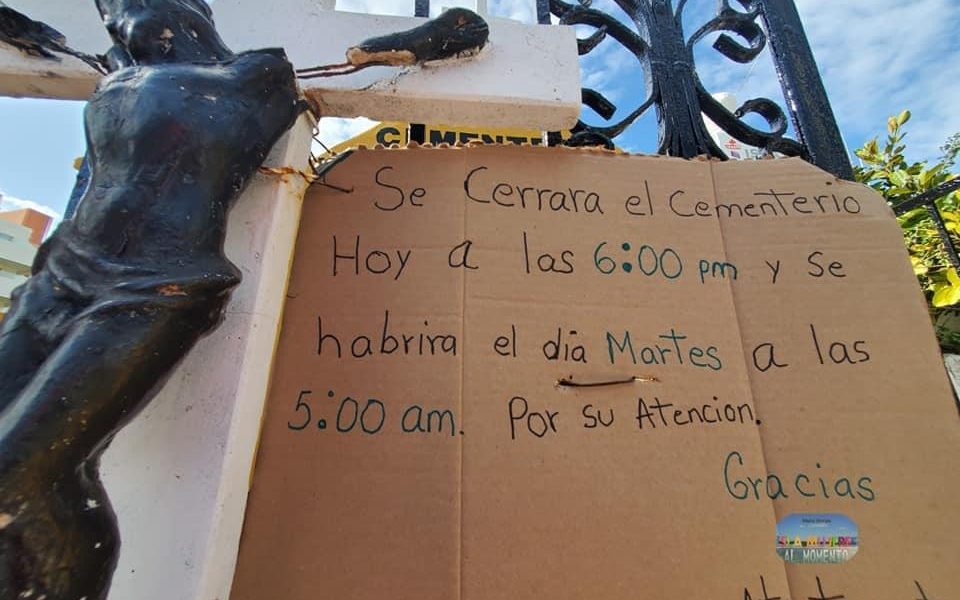 CEMENTE
Se Cerrara el Cementerio
Hoy a las 6:00 pm y se
habrira el dia Martes a las
5:00 am. Por su Atencion.
Gracias
ISLA MUJERES
AL MOMENTO